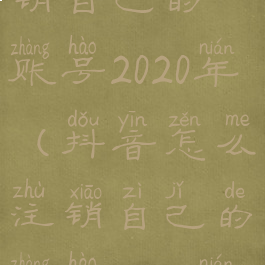 销自己的
zhàng hào nián
账号2020年
dǒu yīn zěn me
(抖音怎么
zhù xiāo zì jǐ de
注销自己的
zhàng hào nián